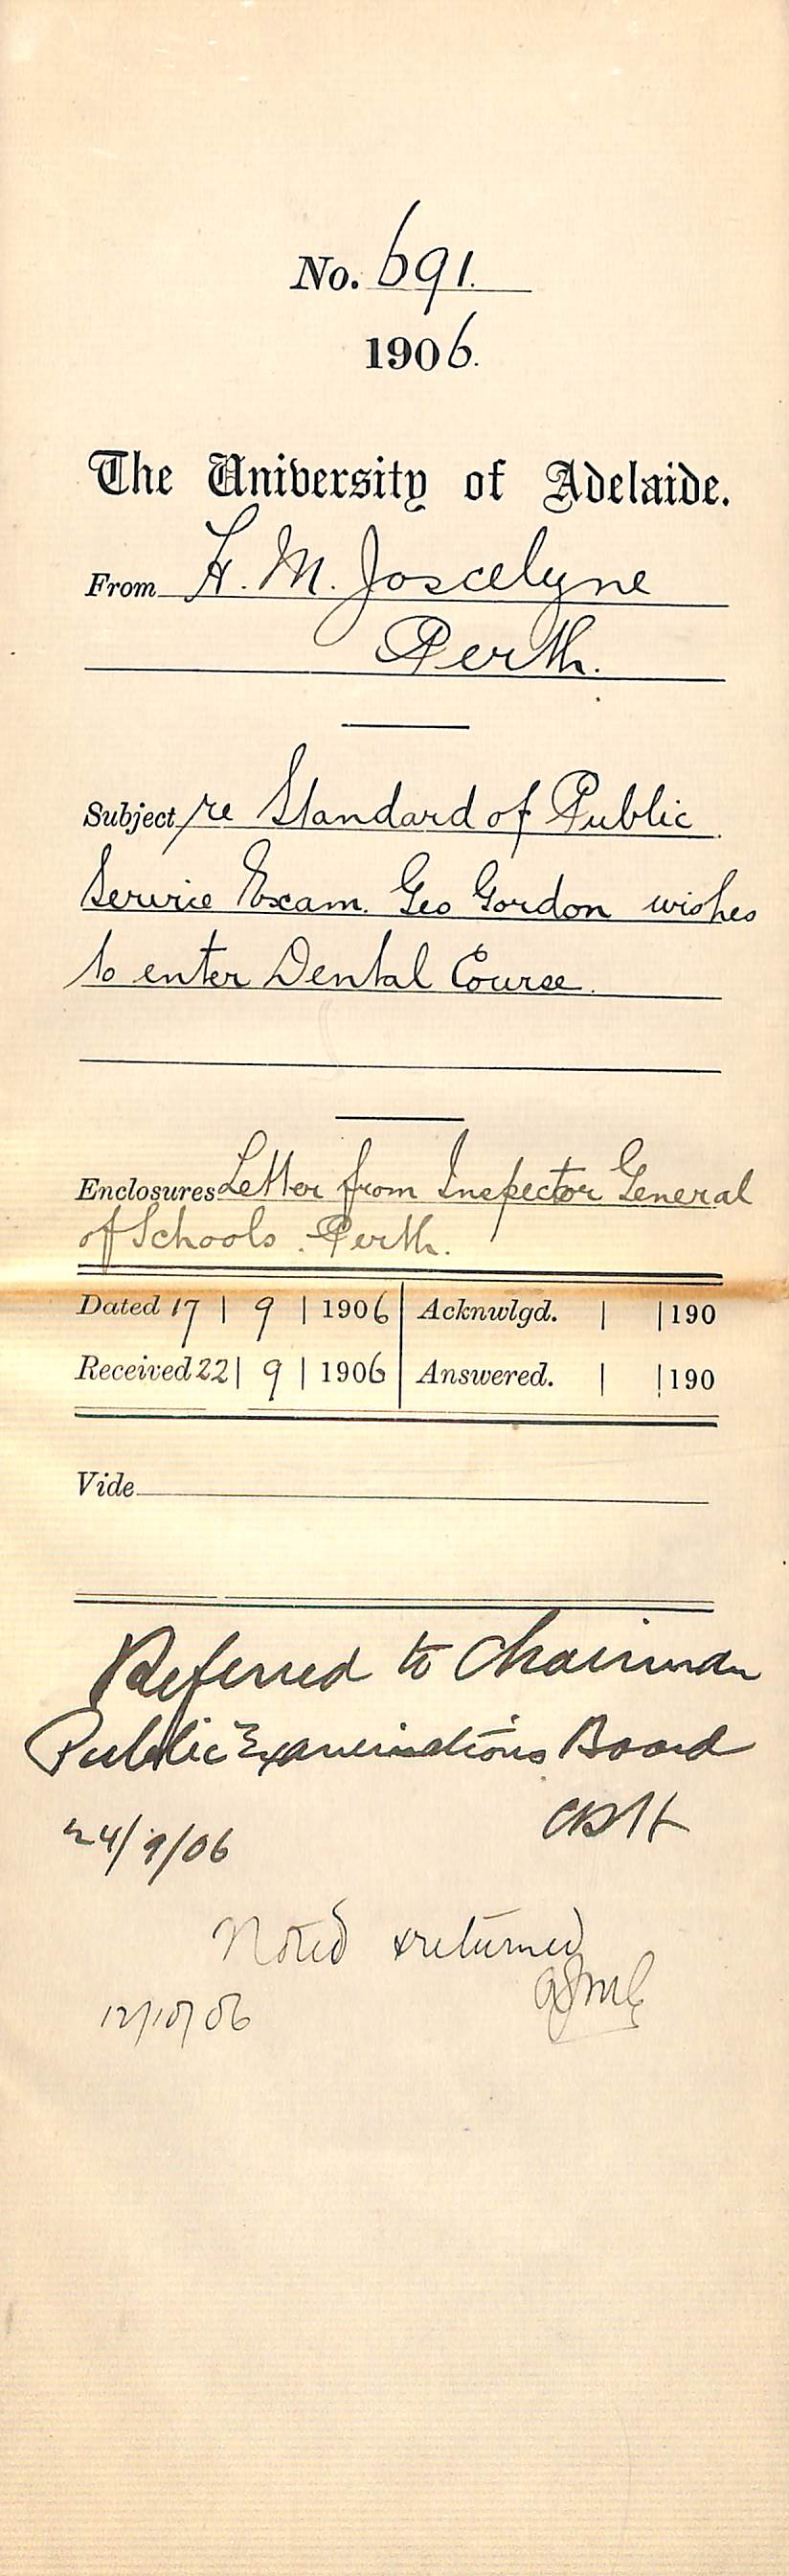 No. 691.
1906.
The University of Adelaide.
From H. M. Joscelyne
Perth.
Subject re Standard of Public
Service Exam. Geo Gordon wishes
to enter Dental Course.
Enclosures Letter from Inspector General
of Schools. Perth.
Dated 17 | 9 | 1906 | Acknwlgd. | | 190
Received 22 | 9 | 1906 | Answered. | | 190
Vide
Referred to Chairman
Public Examinations Board
24/9/06
Noted & returned
12/10/06